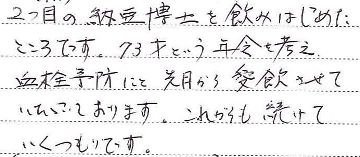 2つ目の納豆博士を飲みはじめた
ところです。73才という年令を考え
血栓予防にと先月から愛飲させて
いただいております。これからも続けて
いくつもりです。